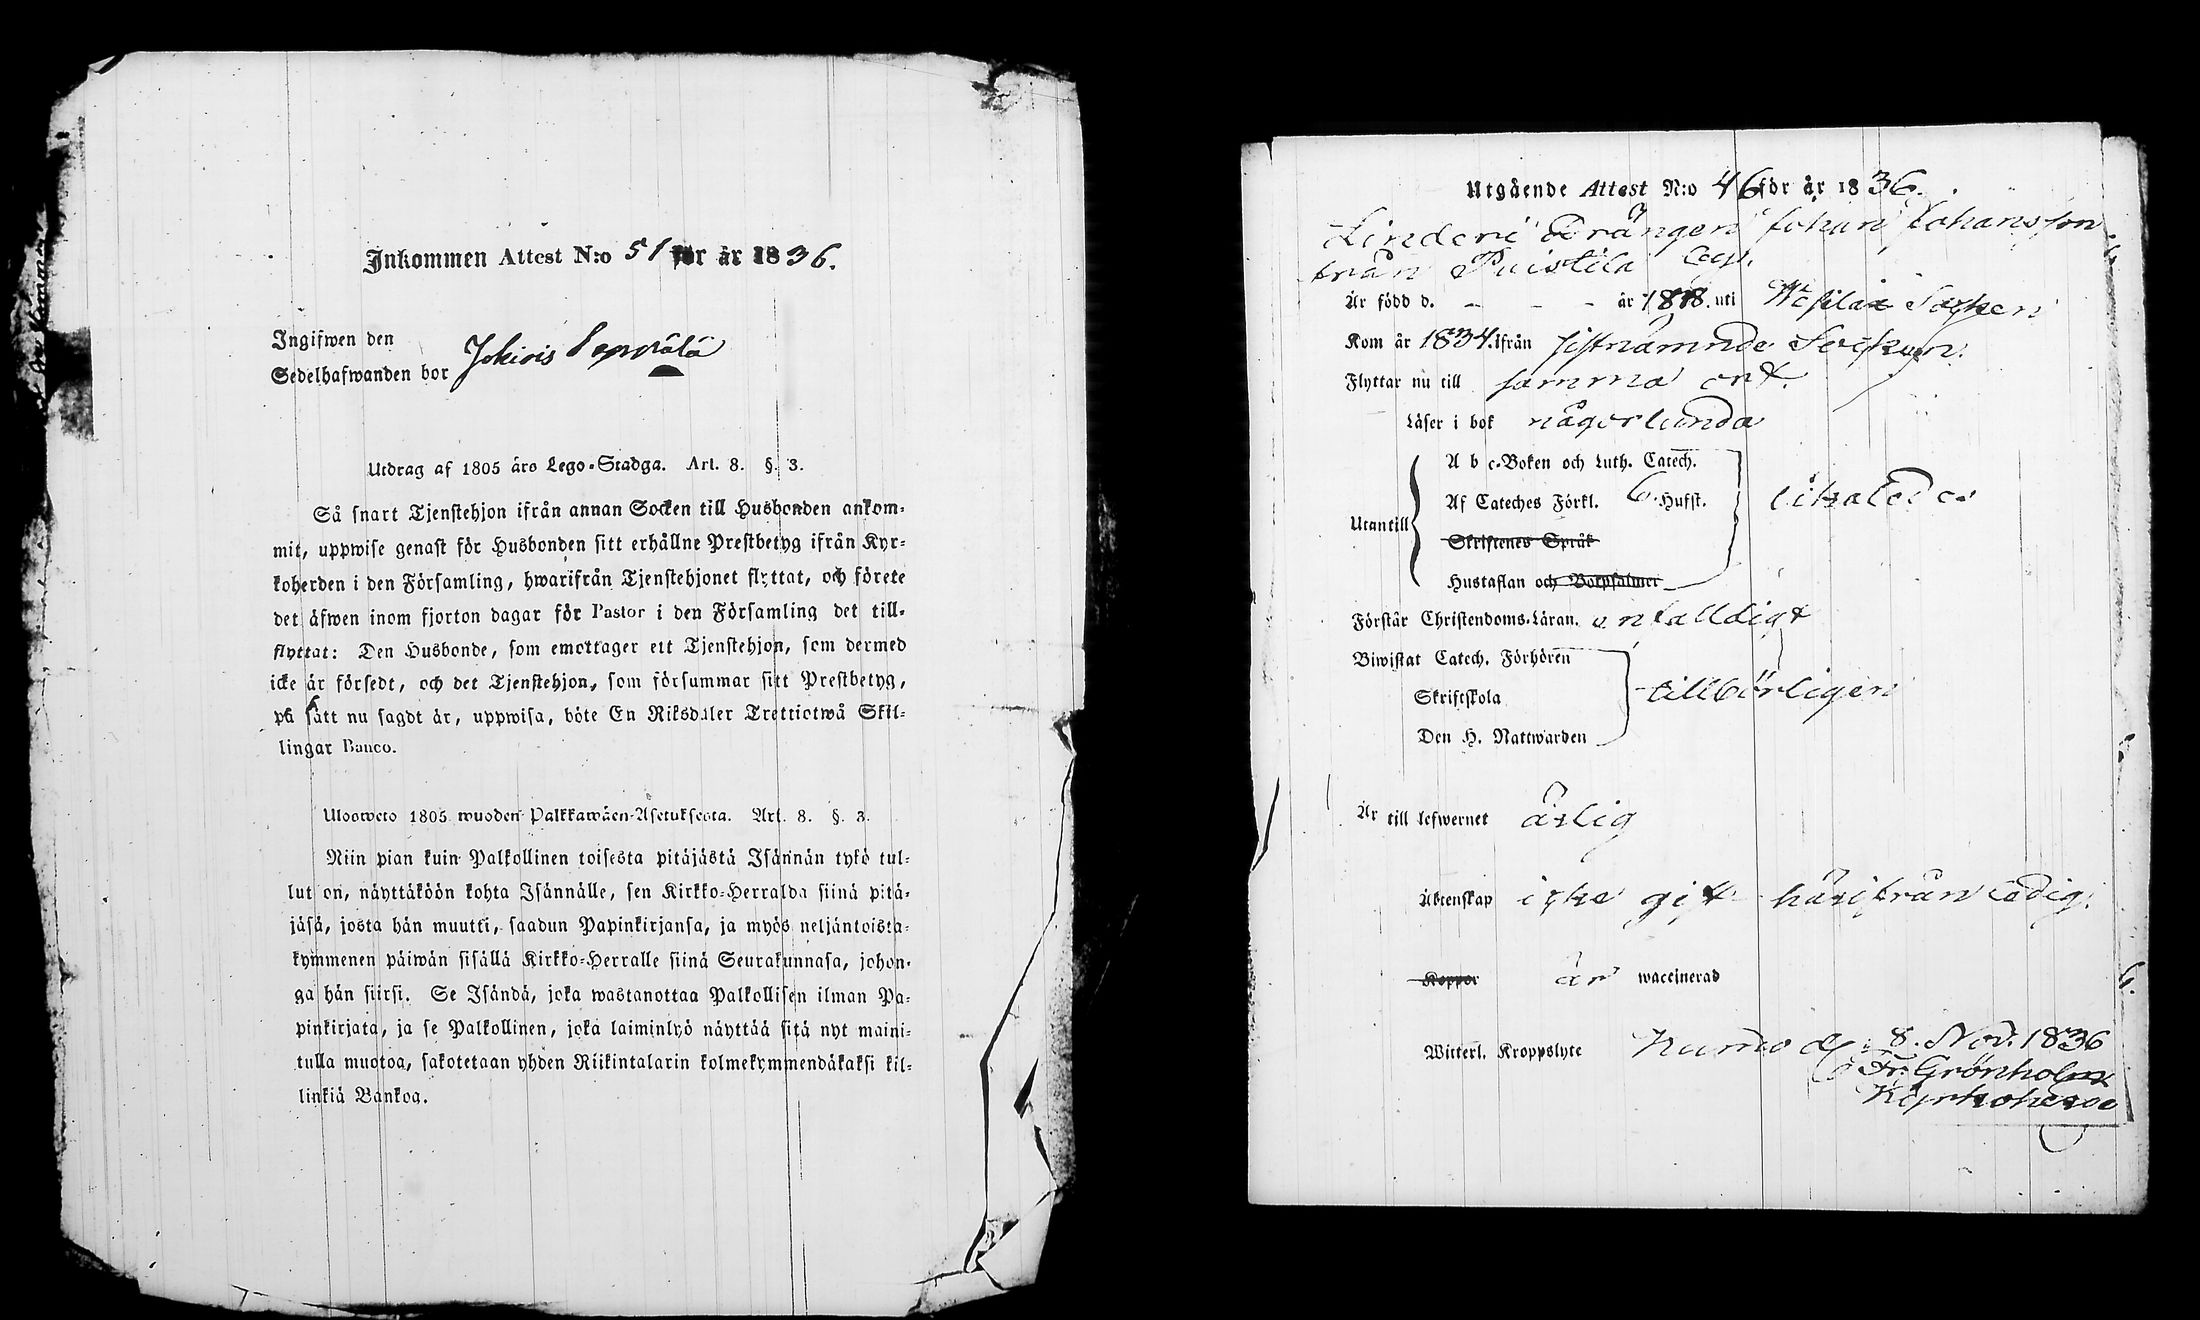 Inkommen Attest N:o 51 för år 1836.
Ingifwen den
Sedelhafwanden bor Jokiois Seppälä
Utdrag af 1805 års Lego-Stadga. Art. 8. §. 3.
Så snart Tjenstehjon ifrån annan Socken till Husbonden ankom-
mit, uppwise genast för Husbonden sitt erhållne Prestbetyg ifrån Kyr-
koherden i den Församling, hwarifrån Tjenstehjonet flyttat, och förete
det äfwen inom fjorton dagar för Pastor i den Församling det till-
flyttat: Den Husbonde, som emottager ett Tjenstehjon, som dermed
icke är försedt, och det Tjenstehjon, som försummar sitt Prestbetyg,
på sätt nu sagdt är, uppwisa, böte En Riksdaler Trettiotwå Skil-
lingar Banco.
Uloosweto 1805 wuoden Palkkawäen-Asetuksesta. Art. 8. §. 3.
Niin pian kuin Palkollinen toisesta pitäjästä Isännän tykö tul-
lut on, näyttäköön kohta Isännälle, sen Kirkko-Herralda siinä pitä-
jäsä, josta hän muutti, saadun Papinkirjansa, ja myös neljäntoista-
kymmenen päiwän sisällä Kirkko-Herralle siinä Seurakunnasa, johon-
ga hän siirsi. Se Isändä, joka wastanottaa Palkollisen ilman Pa-
pinkirjata, ja se Palkollinen, joka laiminlyö näyttää sitä nyt maini-
tulla muotoa, sakotetaan yhden Riikintalarin kolmekymmendäkaksi kil-
linkiä Bankoa.
Utgående Attest N:o 46 för år 1836.
Drängen Johan Johansson
från Puistila
Är född d. - - - år 1818. uti Socken
Kom år 1834. ifrån sistnämnde Socken.
Flyttar nu till samma ort.
Läser i bok någorlunda
A b c-Boken och Luth. Catech.
Af Cateches Förkl. 6 Hufst.
Utantill likaledes
Skriftenes Språk
Hustaflan och Botpsalmer
Förstår Christendoms-Läran. enfalldigt
Biwistat Catech. Förhören
Skriftskola tillbörligen
Den H. Nattwarden
Är till lefwernet ärlig
Äktenskap icke gift härifrån ledig.
Koppor är waccinerad
Witterl. Kroppslyte 8. Nov. 1836
Fr. Grönholm
Kyrkoherde